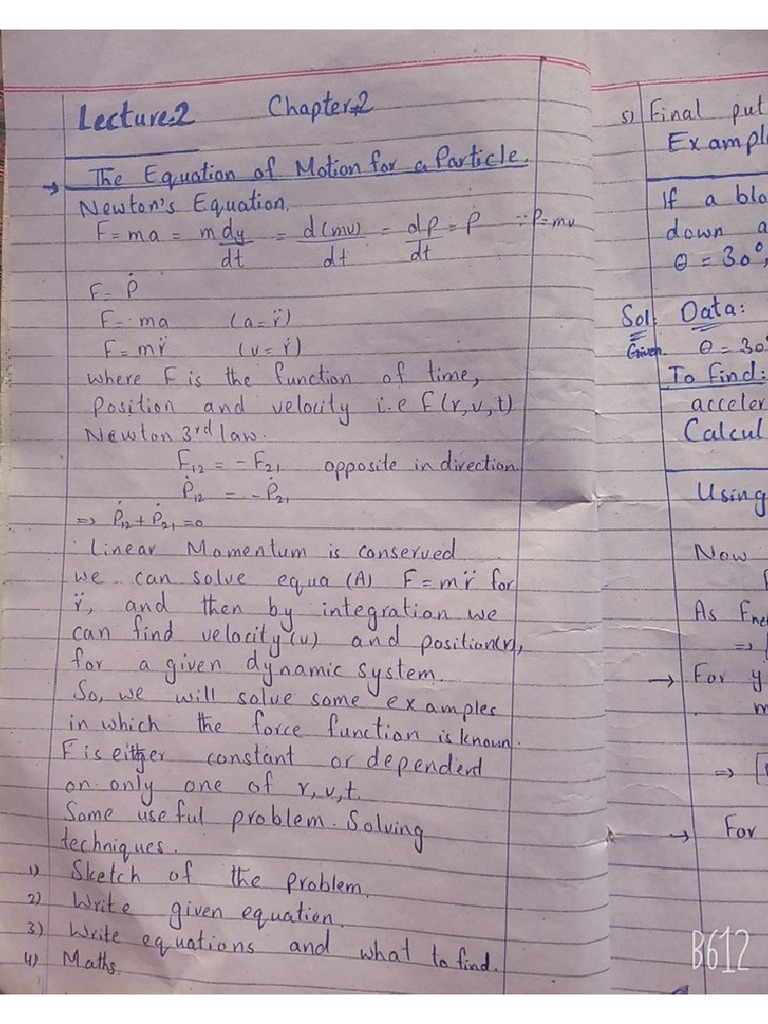 Lecture.2 Chapter.2
The Equation of Motion for a Particle.
Newton's Equation.
F = ma = mdy/dt = d(mv)/dt = dp/dt = Ṗ ∵ P=mv
F = Ṗ
F = ma (a = r̈)
F = mr̈ (v = ṙ)
where F is the function of time,
Position and velocity i.e F(r,v,t)
Newton 3rd law.
F12 = -F21 opposite in direction
Ṗ12 = -Ṗ21
=> Ṗ12 + Ṗ21 = 0
Linear Momentum is conserved
we can solve equa (A) F = mr̈ for
r̈, and then by integration we
can find velocity(v) and position(r),
for a given dynamic system.
So, we will solve some examples
in which the force function is known.
F is either constant or dependent
on only one of r,v,t.
Some useful problem. Solving
techniques.
1) Sketch of the problem.
2) Write given equation.
3) Write equations and what to find.
4) Maths.
5) Final put
Exampl
If a blo
down a
θ = 30°,
Sol: Data:
Given θ = 30°
To Find:
acceler
Calcul
Using
Now
As Fne
=>
→ For y
m
=>
→ For
B612